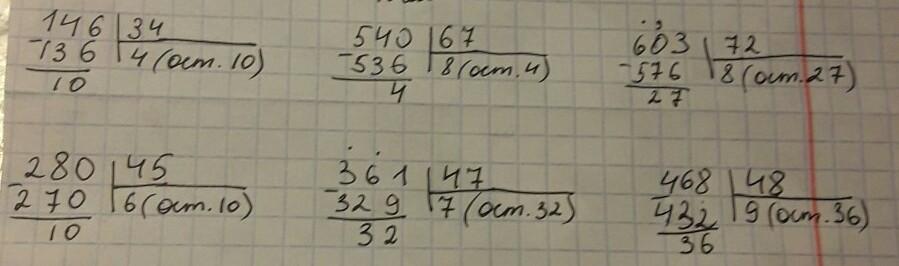 146 34 540 67 603 72
-136 4 (ост. 10) -536 8 (ост. 4) -576 8 (ост. 27)
10 4 27
280 45 361 47 468 48
-270 6 (ост. 10) -329 7 (ост. 32) 432 9 (ост. 36)
10 32 36